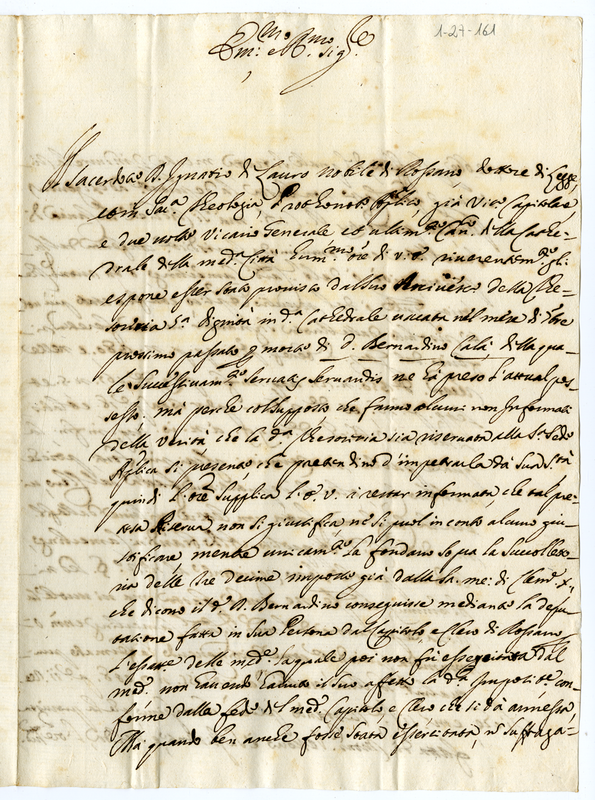 1-27-161
Em:mo e R.mo Sig.re
Il Sacerdote D. Ignatio di Lauro nobile di Rossano, dottore di legge
e di Sac.a Theologia, Prothonot.o Aplico, già Vic.o Capitolare
e due volte Vicario Generale et Can.co della Cathe-
drale della med.a Città hum.mo ore di V. E. riverentem.te gli
espone esser stato provisto dal suo Arcivesco della The-
soreria dignità in d.a Cathedrale vacata nel mese di
prossimo passato per morte di D. Bernardino Calà, della qua-
le successivam.te servatis servandis ne hà preso l'attual pos-
sesso, mà perche col supposto che fanno alcuni non informati
della verità, che la d.a Thesoreria sia riservata alla S.ta Sede
Aplica si presente, che pretendino d'impetrarla dà Sua S.tà
quindi l'ore supplica l'E. V. à restar informata, che tal pre-
tesa Riserva non si giustifica, ne si puol in conto alcuno giu-
stificare mentre unicam.te la fondano sopra la succollet-
ria delle tre decime imposte già dalla fa. me: di Clem.e X.
che dicono il d.o D. Bernardino conseguisse mediante la depu-
tatione fatta in sua Persona dal Capitolo e Clero di Rossano
l'esatte delle med.e la quale poi non fù esseguita dal
med.o non havendo havuto il suo effetto la d.a con-
forme dalla fede del med.o Capitolo, e Clero che si dà annessa,
Mà quando ben anche fosse stata essercitata, ne suffraga-